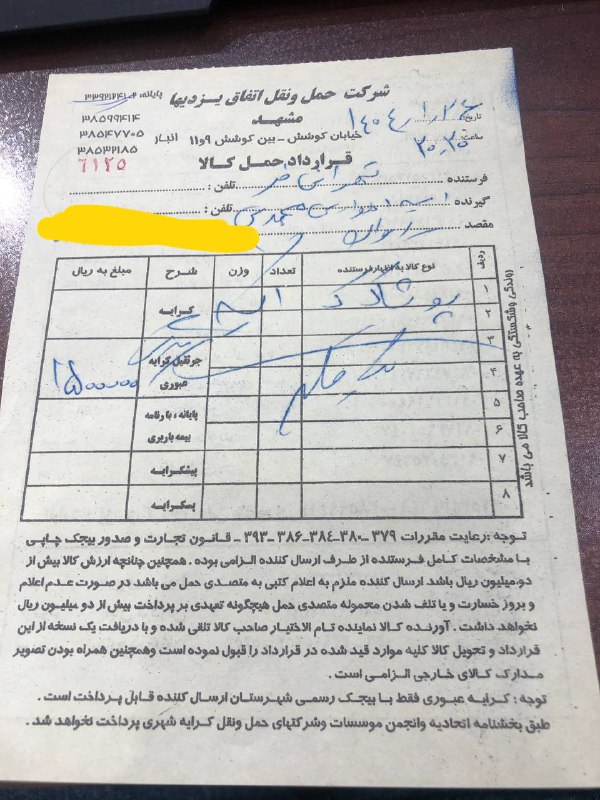 شرکت حمل ونقل اتفاق یزدیها
پایانه: ۲-۳۳۹۲۱۲۴۱
مشهد
تاریخ ۱۴۰۴/۱/۲۶
۳۸۵۹۹۴۱۴
خیابان کوشش - بین کوشش ۹و۱۱ انبار ۳۸۵۴۷۷۰۵
ساعت ۲۰:۲۵
۳۸۵۳۲۱۸۵
قرارداد حمل کالا
6125
فرستنده تلفن :
گیرنده تلفن :
مقصد
ردیف نوع کالا به اظهار فرستنده تعداد وزن شرح مبلغ به ریال
۱ پوشاک
۲ کرایه
۳
جرثقیل کرایه
۴ عبوری ۱۵۰۰۰۰۰
۵ پایانه ، بارنامه
۶ بیمه باربری
۷ پیشکرایه
۸ پسکرایه
روندگی وشکستگی به عهده صاحب کالا می باشد
توجه :رعایت مقررات ۳۷۹ -۳۸۰-۳۸۴-۳۸۶-۳۹۳ - قانون تجارت و صدور بیجک چاپی
با مشخصات کامل فرستنده از طرف ارسال کننده الزامی بوده . همچنین چنانچه ارزش کالا بیش از
دو میلیون ریال باشد ارسال کننده ملزم به اعلام کتبی به متصدی حمل می باشد در صورت عدم اعلام
و بروز خسارت و یا تلف شدن محموله متصدی حمل هیچگونه تعهدی بر پرداخت بیش از دو میلیون ریال
نخواهد داشت . آورنده کالا نماینده تام الاختیار صاحب کالا تلقی شده و با دریافت یک نسخه از این
قرارداد و تحویل کالا کلیه موارد قید شده در قرارداد را قبول نموده است وهمچنین همراه بودن تصویر
مدارک کالای خارجی الزامی است .
توجه : کرایه عبوری فقط با بیجک رسمی شهرستان ارسال کننده قابل پرداخت است .
طبق بخشنامه اتحادیه وانجمن موسسات وشرکتهای حمل ونقل کرایه شهری پرداخت نخواهد شد .